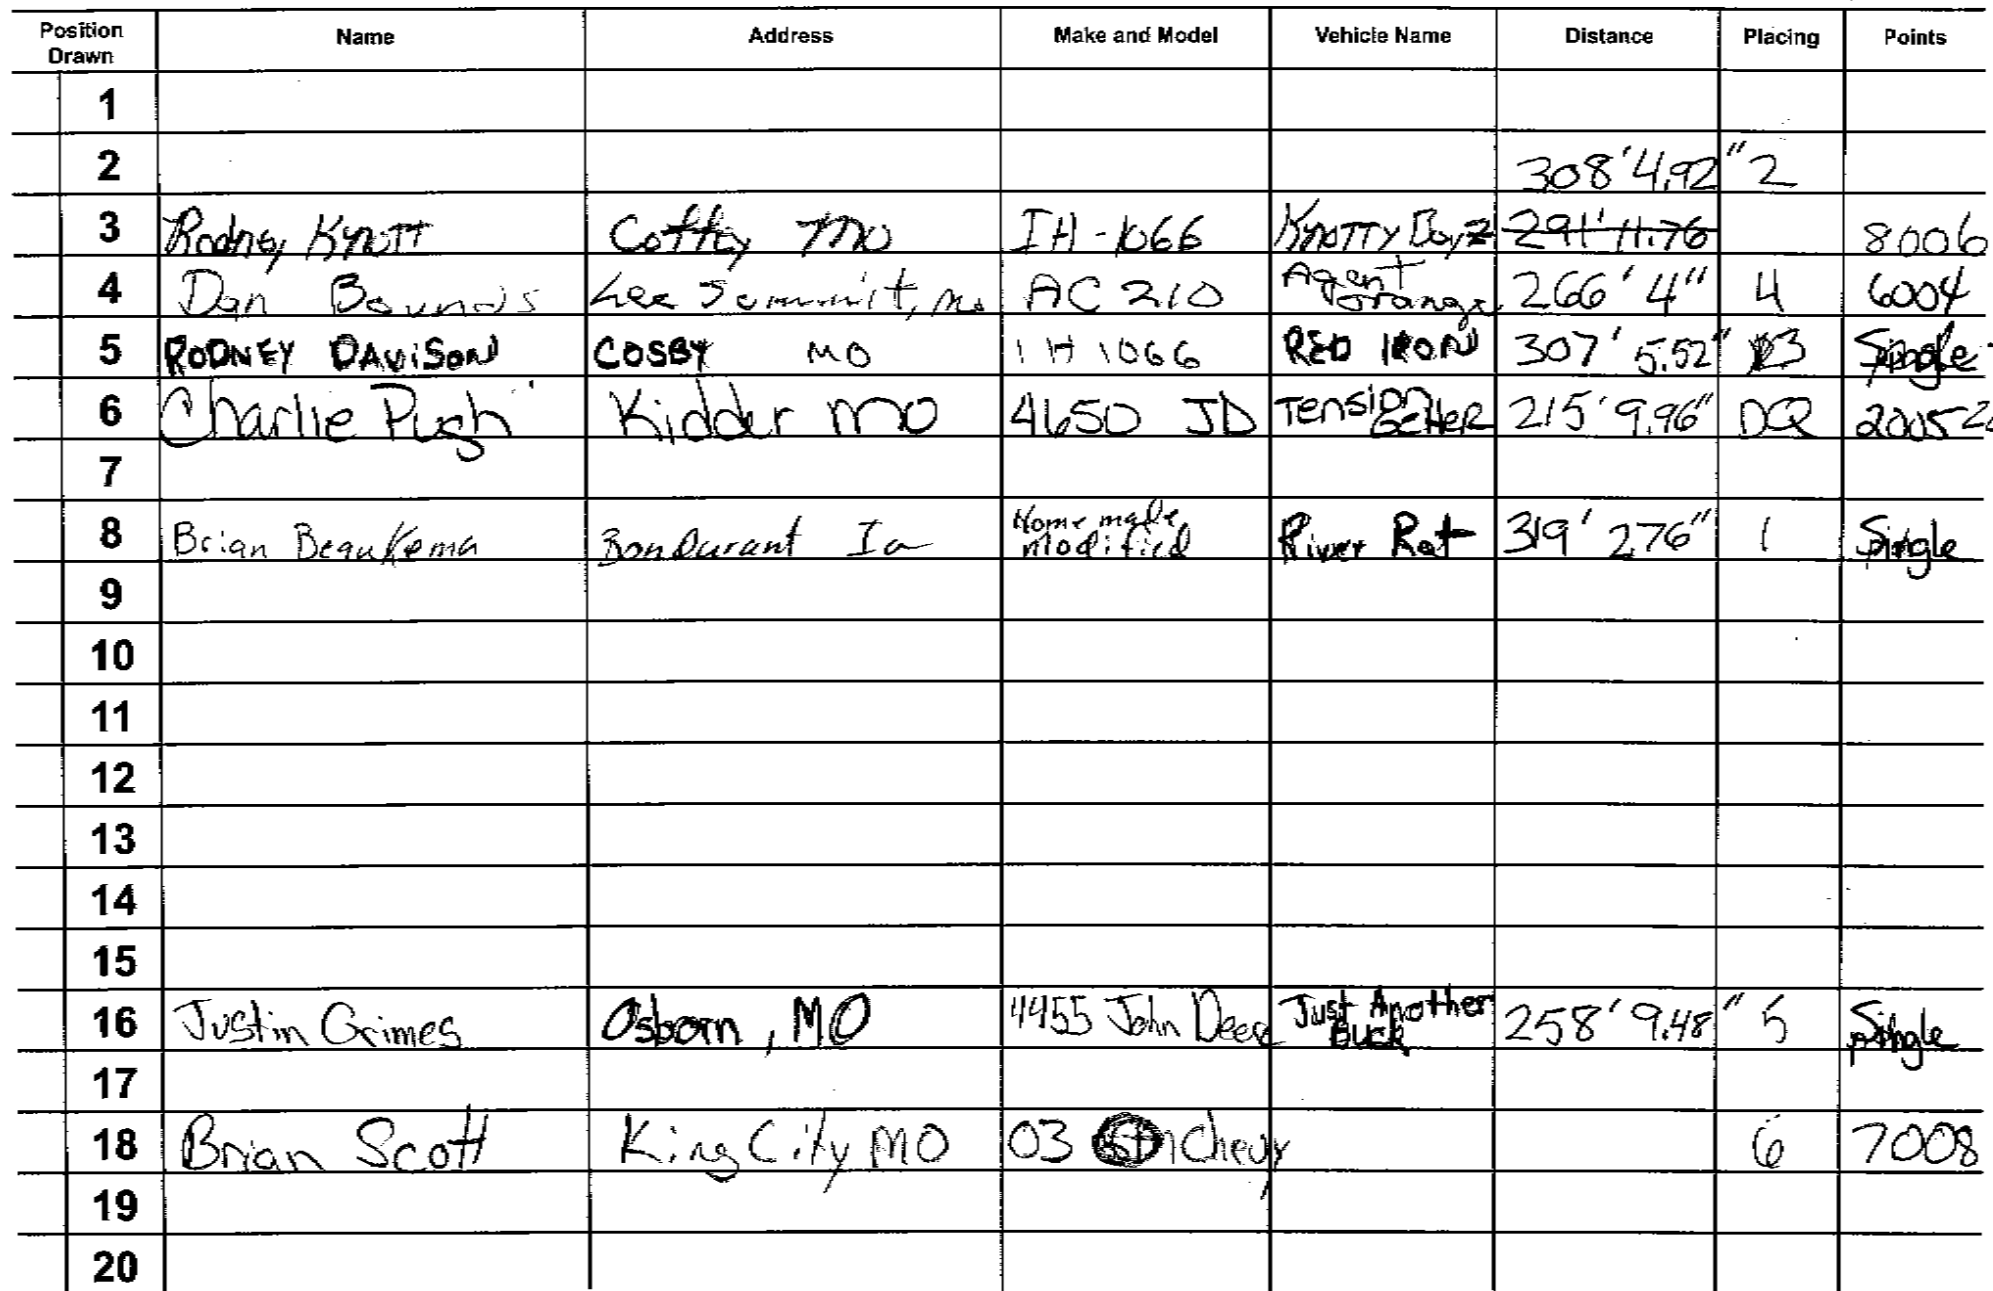 Position Drawn Name Address Make and Model Vehicle Name Distance Placing Points
1
2 308' 4.92" 2
3 Rodney Knott Coffey MO IH-1066 Knotty Boyz 291' 11.76 8006
4 Dan Bounds Lee Summit, Mo AC 210 Agent Orange 266' 4" 4 6004
5 RODNEY DAVISON COSBY MO IH 1066 RED IRON 307' 5.52" 3 Single
6 Charlie Pugh Kidder MO 4650 JD Tension Getter 215' 9.96" DQ 2005
7
8 Brian Beaukema Bondurant Ia Home made modified River Rat 319' 276" 1 Single
9
10
11
12
13
14
15
16 Justin Grimes Osborn, MO 4455 John Deere Just Another Buck 258' 9.48" 5 Single
17
18 Brian Scott King City MO 03 Chevy 6 7008
19
20